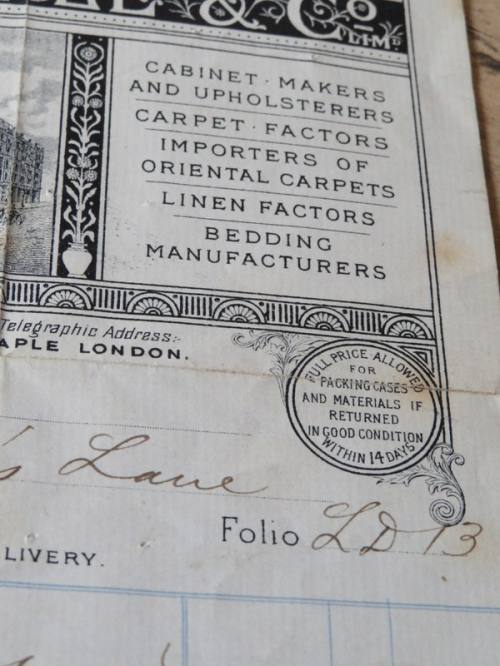 & Co
LIMD
CABINET · MAKERS
AND UPHOLSTERERS
CARPET · FACTORS
IMPORTERS OF
ORIENTAL CARPETS
LINEN FACTORS
BEDDING
MANUFACTURERS
Telegraphic Address:-
APLE LONDON.
FULL PRICE ALLOWED
FOR
PACKING CASES
AND MATERIALS IF
RETURNED
IN GOOD CONDITION
WITHIN 14 DAYS
's Lane
Folio LD 13
LIVERY.